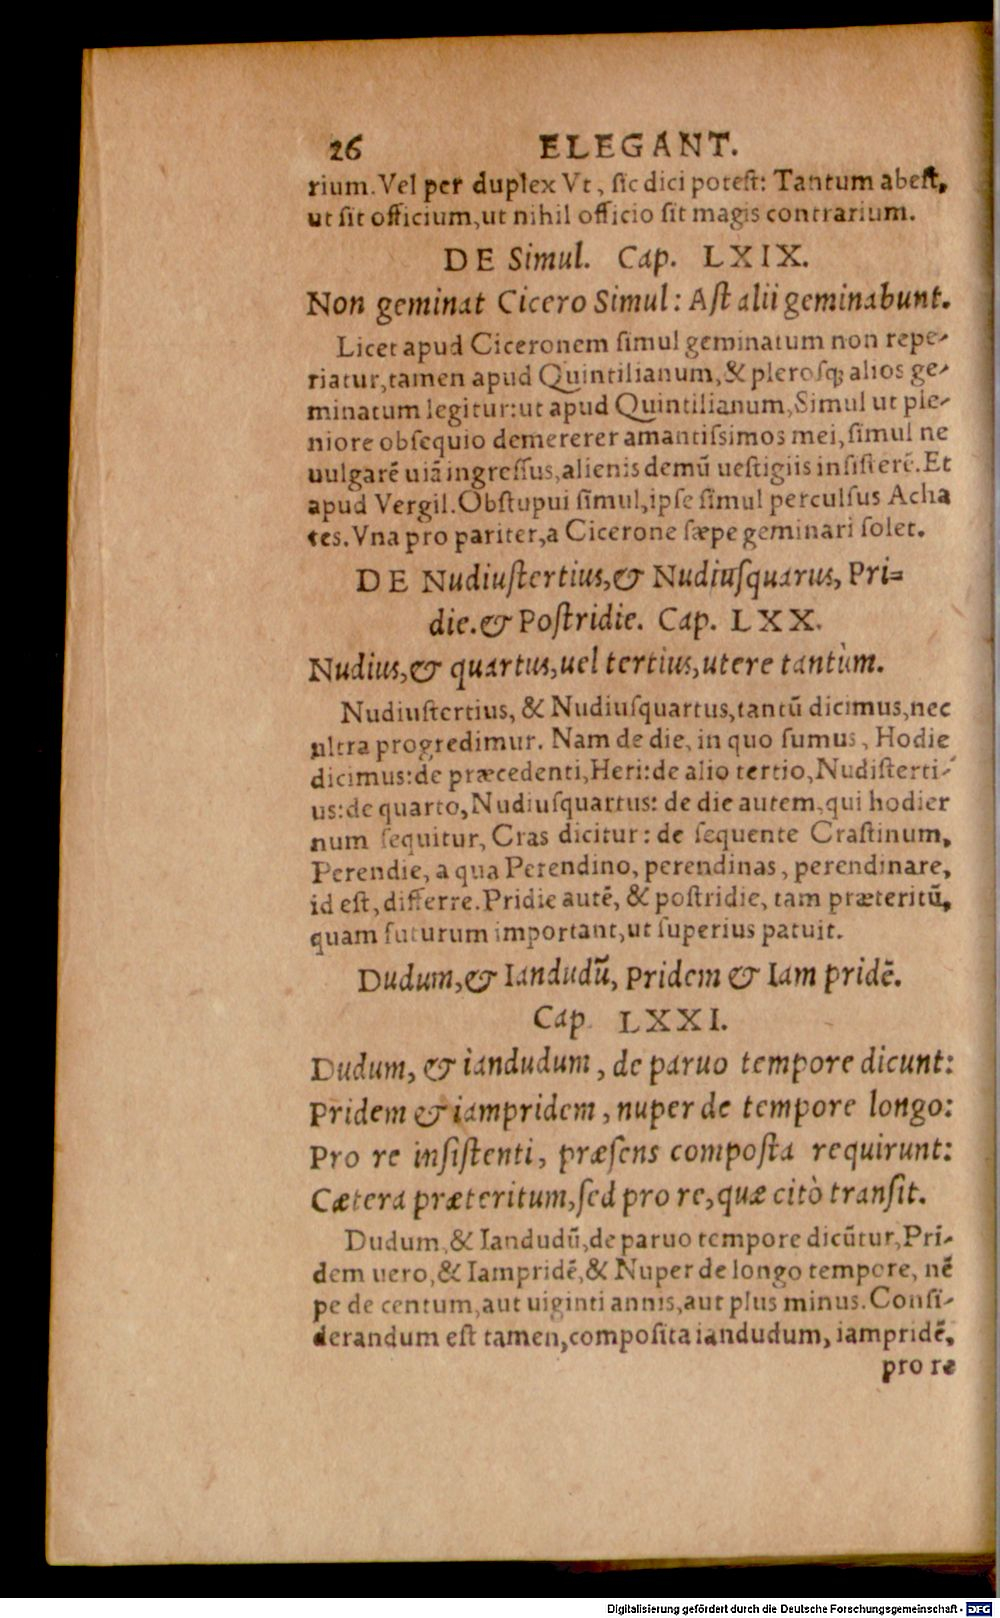 26 ELEGANT.
rium. Vel per duplex Vt, ſic dici poteſt: Tantum abeſt,
ut ſit officium, ut nihil officio ſit magis contrarium.
DE Simul. Cap. LXIX.
Non geminat Cicero Simul: Aſt alii geminabunt.
Licet apud Ciceronem ſimul geminatum non repe-
riatur, tamen apud Quintilianum, & pleroſq; alios ge-
minatum legitur: ut apud Quintilianum, Simul ut ple-
niore obſequio demererer amantiſsimos mei, ſimul ne
uulgarē uiā ingreſſus, alienis demū ueſtigiis inſiſterē. Et
apud Vergil. Obſtupui ſimul, ipſe ſimul perculſus Acha
tes. Vna pro pariter, a Cicerone ſæpe geminari ſolet.
DE Nudiuſtertius, & Nudiuſquarus, Pri=
die. & Poſtridie. Cap. LXX.
Nudius, & quartus, uel tertius, utere tantùm.
Nudiuſtertius, & Nudiuſquartus, tantū dicimus, nec
ultra progredimur. Nam de die, in quo ſumus, Hodie
dicimus: de præcedenti, Heri: de alio tertio, Nudiſterti-
us: de quarto, Nudiuſquartus: de die autem, qui hodier
num ſequitur, Cras dicitur: de ſequente Craſtinum,
Perendie, a qua Perendino, perendinas, perendinare,
id eſt, differre. Pridie autē, & poſtridie, tam præteritū,
quam futurum important, ut ſuperius patuit.
Dudum, & Iandudū, Pridem & Iam pridē.
Cap. LXXI.
Dudum, & iandudum, de paruo tempore dicunt:
Pridem & iampridem, nuper de tempore longo:
Pro re inſiſtenti, præſens compoſta requirunt:
Cætera præteritum, ſed pro re, quæ citò tranſit.
Dudum, & Iandudū, de paruo tempore dicūtur, Pri-
dem uero, & Iampridē, & Nuper de longo tempore, nē
pe de centum, aut uiginti annis, aut plus minus. Conſi-
derandum eſt tamen, compoſita iandudum, iampridē,
pro re
Digitalisierung gefördert durch die Deutsche Forschungsgemeinschaft - DFG